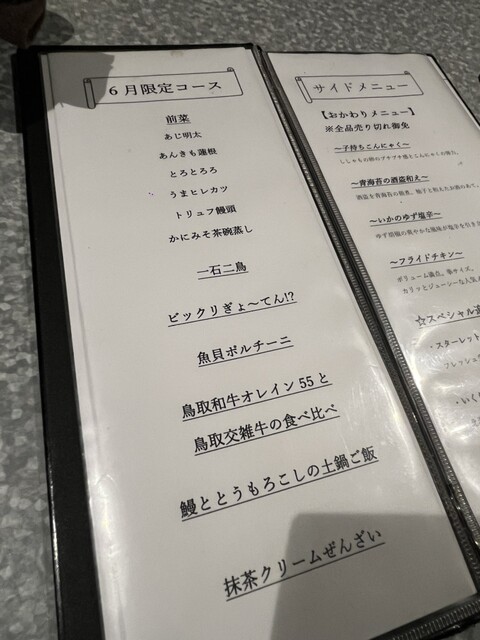 6月限定コース
前菜
あじ明太
あんきも蓮根
とろとろろ
うまヒレカツ
トリュフ饅頭
かにみそ茶碗蒸し
一石二鳥
ビックリぎょ〜てん!?
魚貝ポルチーニ
鳥取和牛オレイン55と
鳥取交雑牛の食べ比べ
鰻ととうもろこしの土鍋ご飯
抹茶クリームぜんざい
サイドメニュー
【おかわりメニュー】
※全品売り切れ御免
〜子持ちこんにゃく〜
ししゃもの卵のプチプチ感とこんにゃくの
〜青海苔の酒盗和え〜
〜いかのゆず塩辛〜
〜フライドチキン〜
ボリューム満点。
カリッとジューシーな人気
☆スペシャル
・スターレット
フレッシュ
・いく